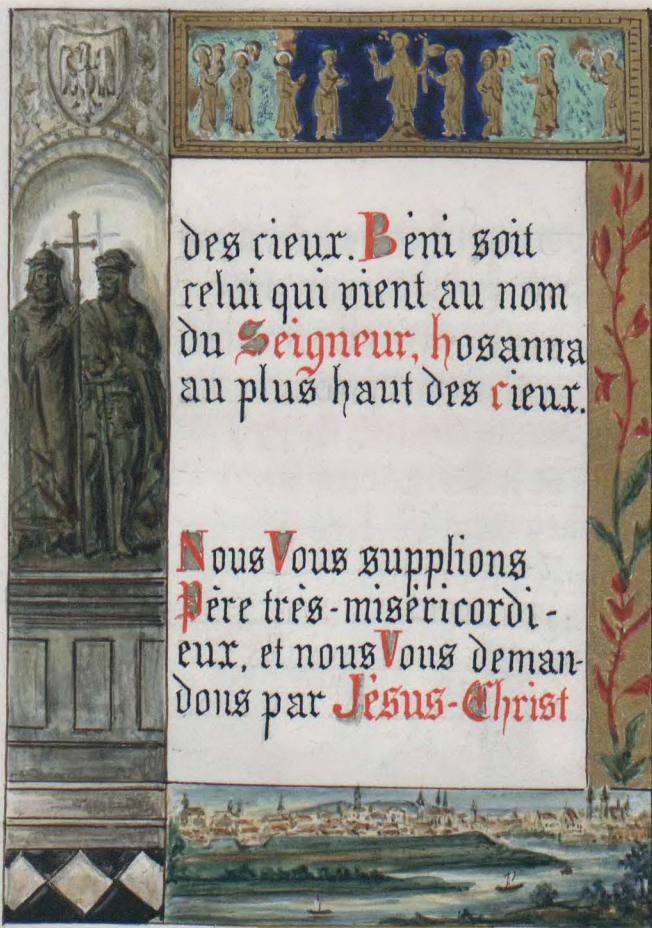 des cieux. Béni soit
celui qui vient au nom
du Seigneur, hosanna
au plus haut des cieux.
Nous Vous supplions
Père très-miséricordi-
eux, et nous Vous deman-
dons par Jésus-Christ